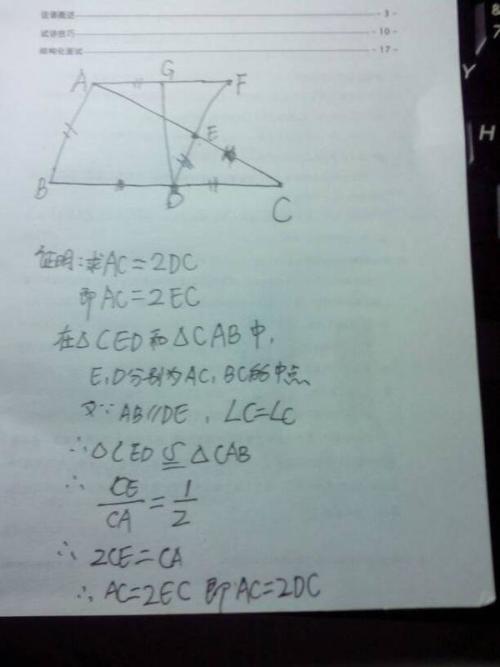 法律概述 - 3 -
试讲技巧 - 10 -
结构化面试 - 17 -
8
7
Y
H
A G F
E
B D C
证明:求AC=2DC
即AC=2EC
在△CED和△CAB中,
E,D分别为AC,BC的中点、
又∵AB//DE,∠C=∠C
∴△CED ≌ △CAB
∴ CE/CA = 1/2
∴ 2CE=CA
∴ AC=2EC 即AC=2DC